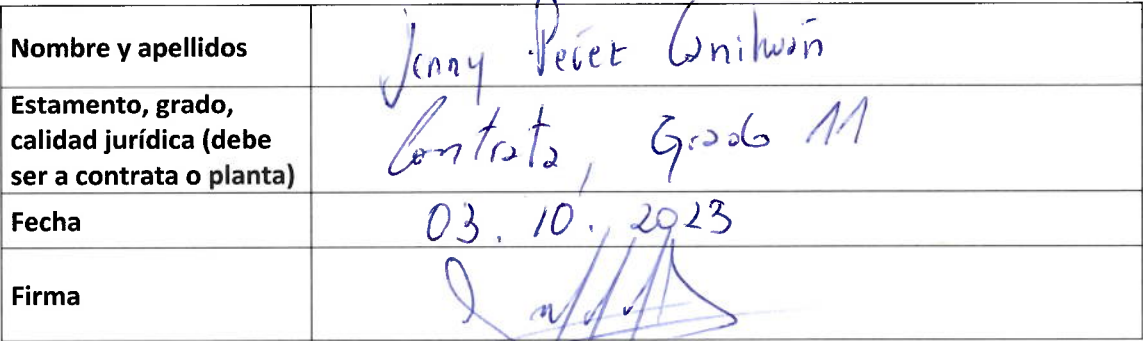 Nombre y apellidos
Jenny Pérez
Estamento, grado,
calidad jurídica (debe
ser a contrata o planta)
Contrata, Grado 11
Fecha
03. 10. 2023
Firma